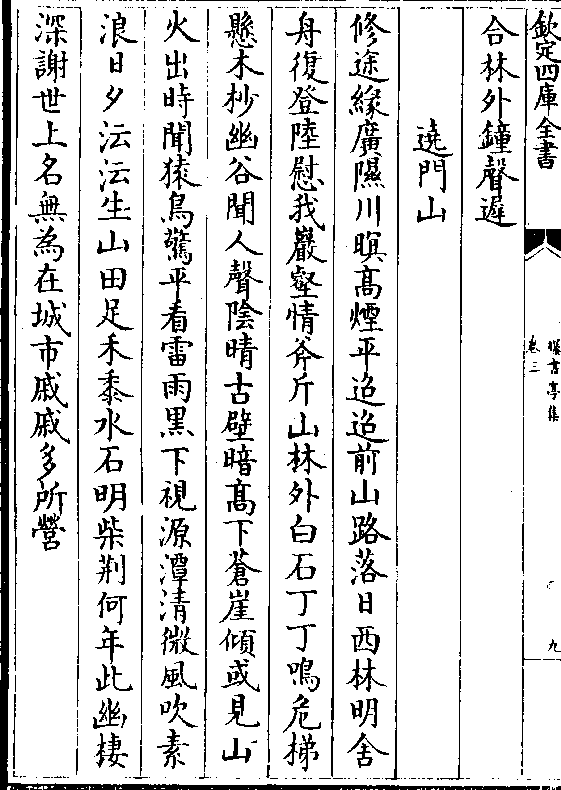 欽定四庫全書
曝書亭集
卷三
九
合林外鐘聲遲
遶門山
修途緣廣隰川暝髙煙平迢迢前山路落日西林明舍
舟復登陸慰我巖壑情斧斤山林外白石丁丁鳴危梯
懸木杪幽谷聞人聲陰晴古壁暗髙下蒼崖傾或見山
火出時聞猿鳥驚平看雷雨黒下視源潭清微風吹素
浪日夕沄沄生山田足禾黍水石明柴荆何年此幽棲
深謝世上名無為在城市戚戚多所營